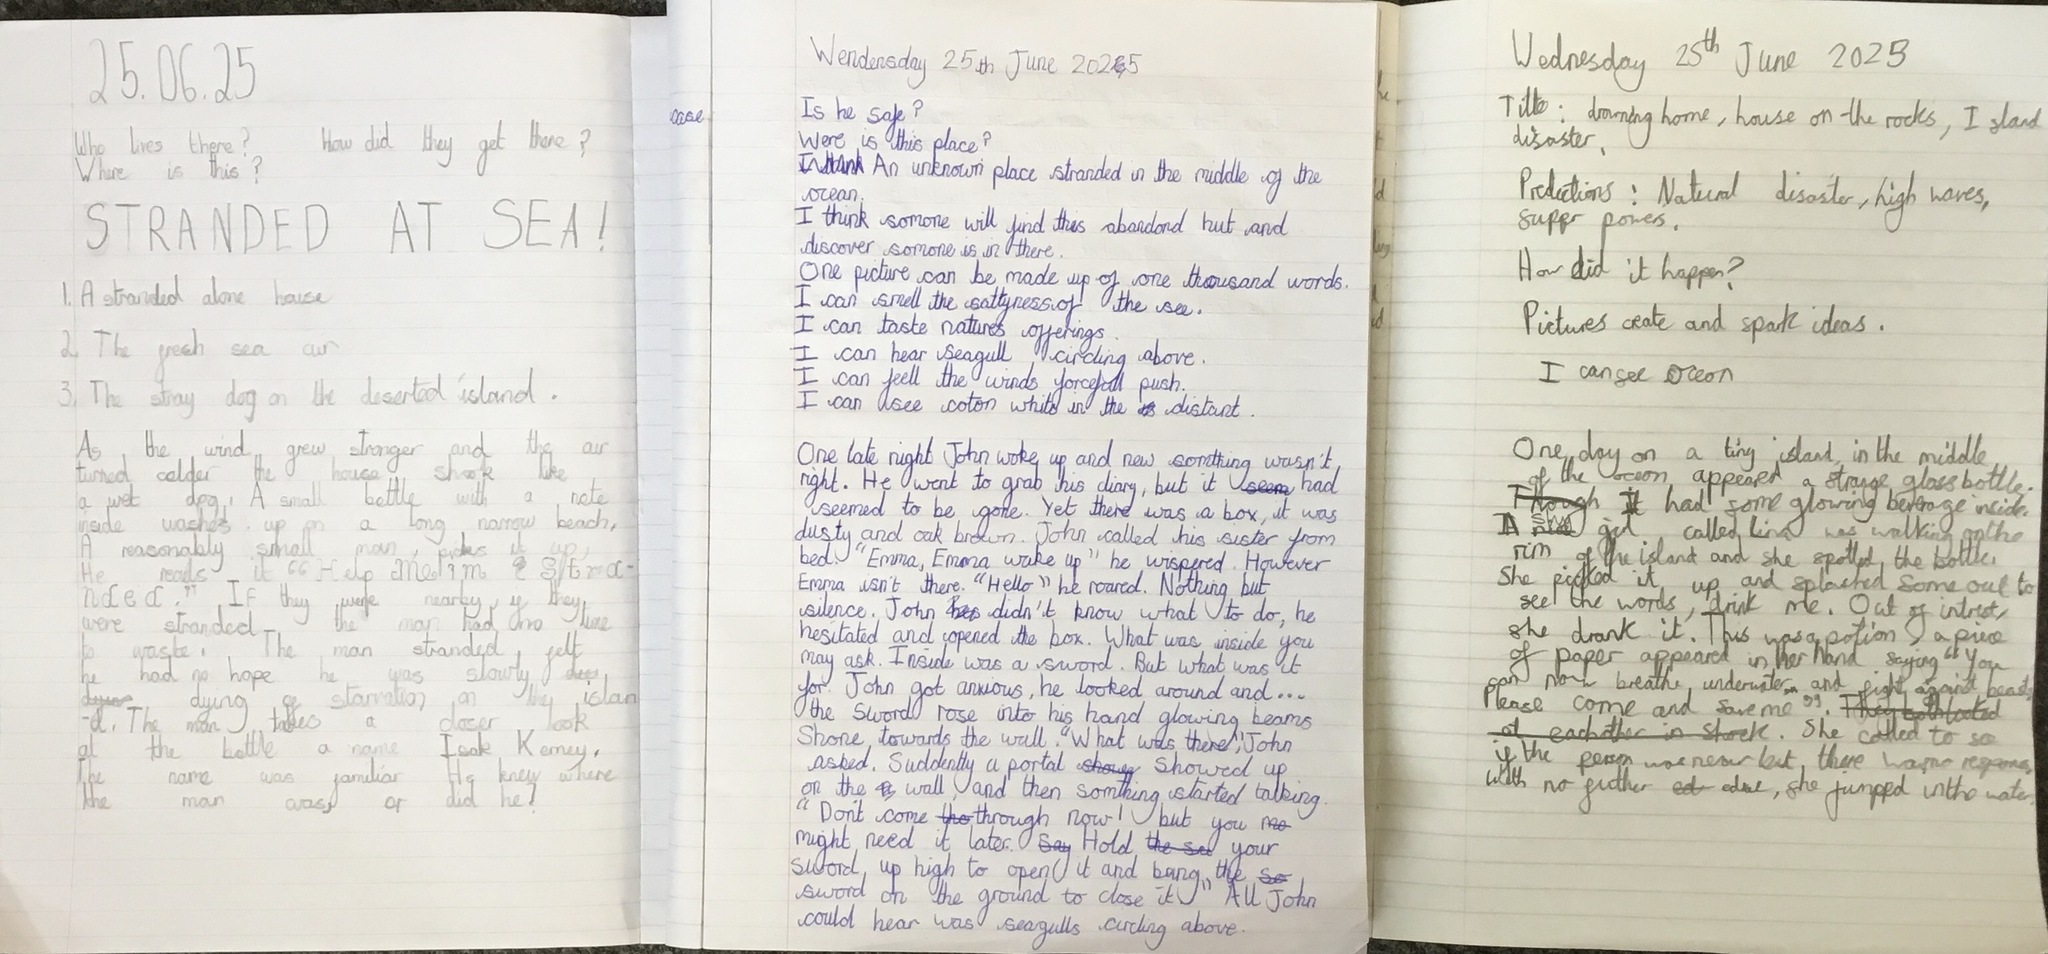 25.06.25
Who lives there? How did they get there?
Where is this?
STRANDED AT SEA!
1. A stranded alone house
2. The fresh sea air
3. The stray dog on the deserted island.
As the wind grew stronger and the air
turned colder the house shook like
a wet dog. A small bottle with a note
inside washes up on a long narrow beach,
A reasonably small man, picks it up,
He reads it "Help me I'm
" If they were nearby, if they
were stranded the man had no time
to waste. The man stranded, felt
he had no hope he was slowly
dying of starvation on the islan
-d. The man takes a closer look
at the bottle a name Isak Kemey.
The name was familiar He knew where
the man was, or did he?
ease
Wendensday 25th June 2025
Is he safe?
Were is this place?
I think An unknown place stranded in the middle of the
ocean.
I think somone will find this abandond hut and
discover somone is in there.
One picture can be made up of one thousand words.
I can smell the saltyness of the see.
I can taste natures offerings.
I can hear seagull circling above.
I can feell the winds forcefull push.
I can see coton white in the distant.
One late night John woke up and new somthing wasn't
right. He went to grab his diary, but it seem had
seemed to be gone. Yet there was a box, it was
dusty and oak brown. John called his sister from
bed. "Emma, Emma wake up" he wispered. However
Emma isn't there. "Hello" he roared. Nothing but
silence. John has didn't know what to do, he
hesitated and opened the box. What was inside you
may ask. Inside was a sword. But what was it
for. John got anxious, he looked around and...
the sword rose into his hand glowing beams
Shone, towards the wall. "What was there", John
asked. Suddenly a portal Showed up
on the wall, and then somthing started talking.
"Don't come tho through now! but you ma
might need it later. Say Hold the so your
sword up high to open it and bang the so
sword on the ground to close it" All John
could hear was seagulls circling above.
Wednesday 25th June 2025
Title: drowning home, house on the rocks, Island
disaster.
Predictions: Natural disaster, high waves,
supper powers.
How did it happen?
Pictures create and spark ideas.
I can see ocean
One day on a tiny island, in the middle
of the ocean appeared a strange glass bottle.
Though It had some glowing beverage inside.
A girl called Lina was walking on the
rim of the island and she spotted the bottle.
She picked it up and splached some out to
see the words, drink me. Out of intrest,
she drank it. This was a potion, a piece
of paper appeared in her hand saying "You
can now breathe underwater and fight against beasts
Please come and save me". They both looked
at eachother in shock. She called to see
if the person was never but, there was no response,
with no futher, she jumped in the water.